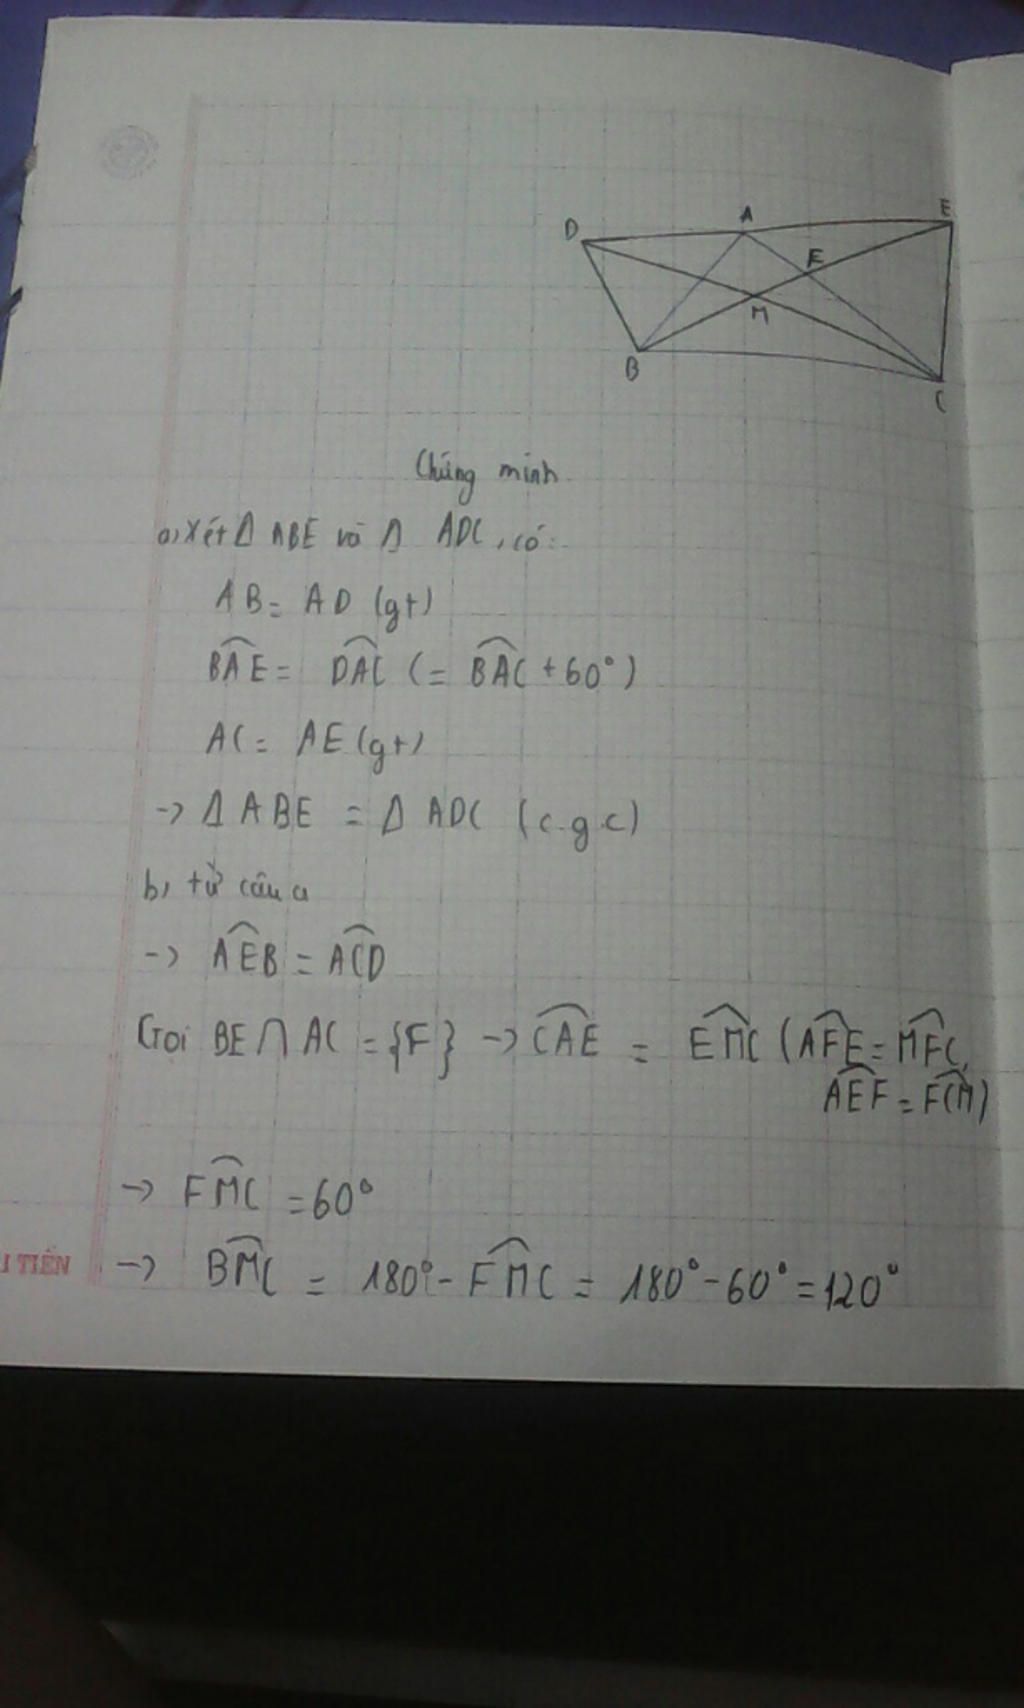 D A E
F
M
B
C
Chứng minh
a, Xét Δ ABE và Δ ADC, có:
AB = AD (gt)
BAE = DAC (= BAC + 60°)
AC = AE (gt)
-> Δ ABE = Δ ADC (c.g.c)
b, từ câu a
-> AEB = ACD
Gọi BE ∩ AC = {F} -> CAE = EMC (AFE = MFC,
AEF = FCM)
-> FMC = 60°
I TIẾN
-> BMC = 180° - FMC = 180° - 60° = 120°